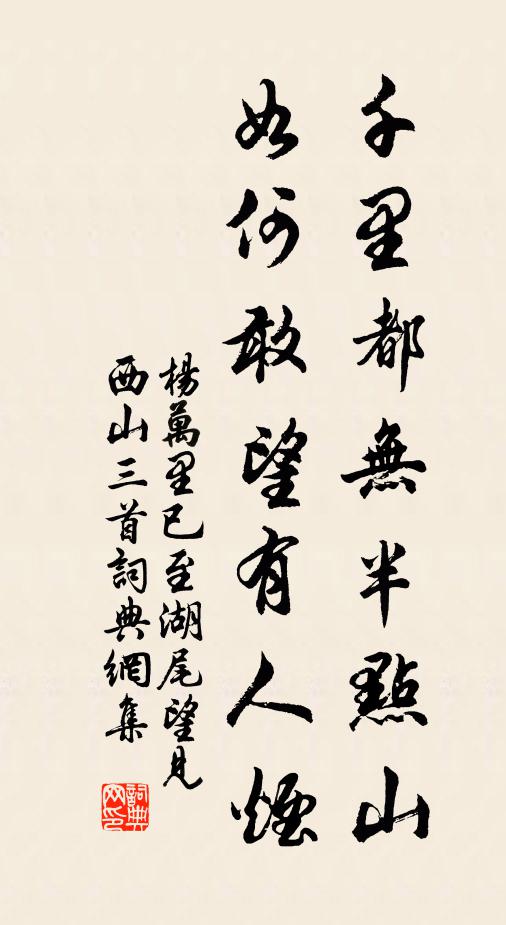 千里都無半點山
如何敢望有人煙
楊萬里已至湖尾望見
西山三首詞典網集
詞典
网印